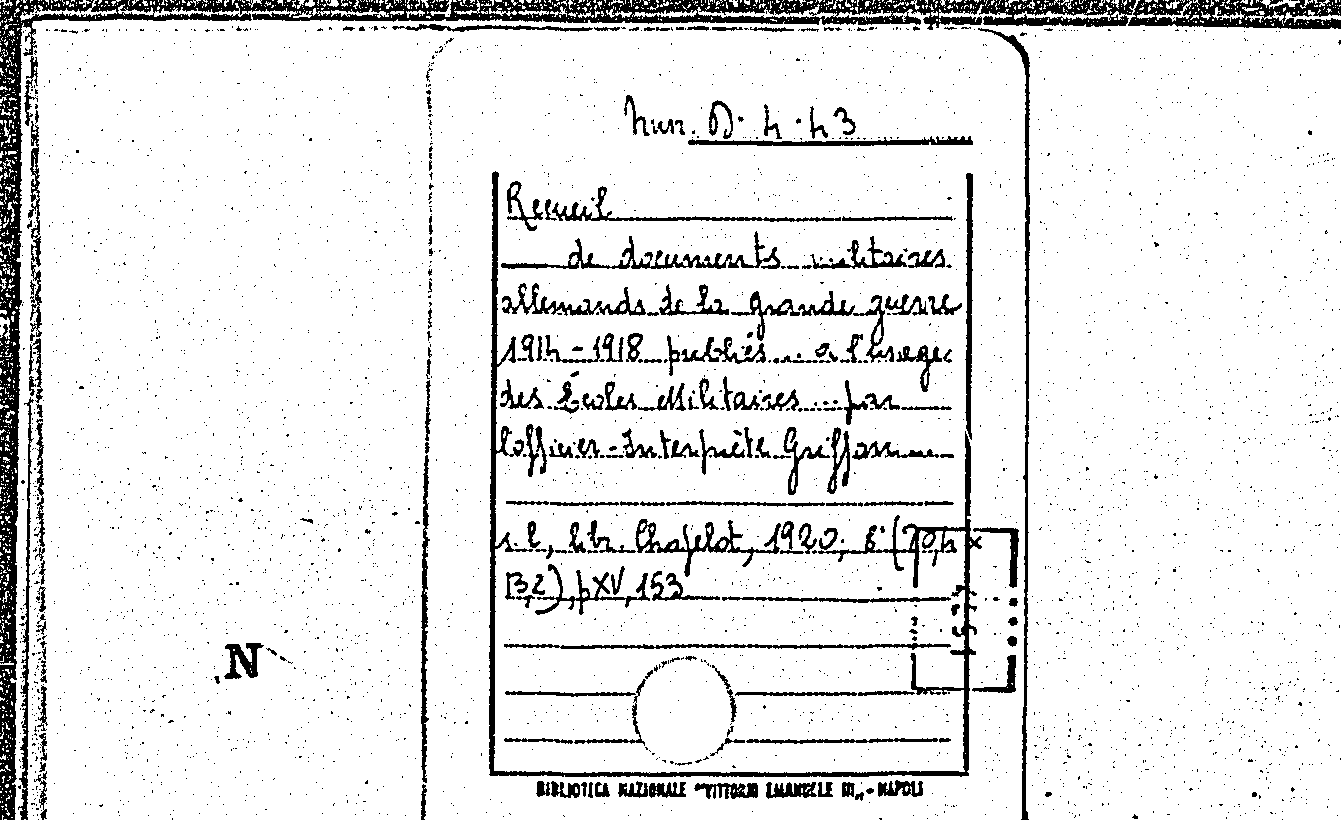 Mun. D. 4. 43
Recueil
de documents militaires
allemands de la grande guerre
1914-1918 publiés ... a l'usage
des Écoles Militaires ... par
l'officier-Interprète Griffon
s. l, libr. Chapelot, 1920; 8° (20,4 ×
13,2), p XV, 153
N
BIBLIOTECA NAZIONALE "VITTORIO EMANUELE III" - NAPOLI